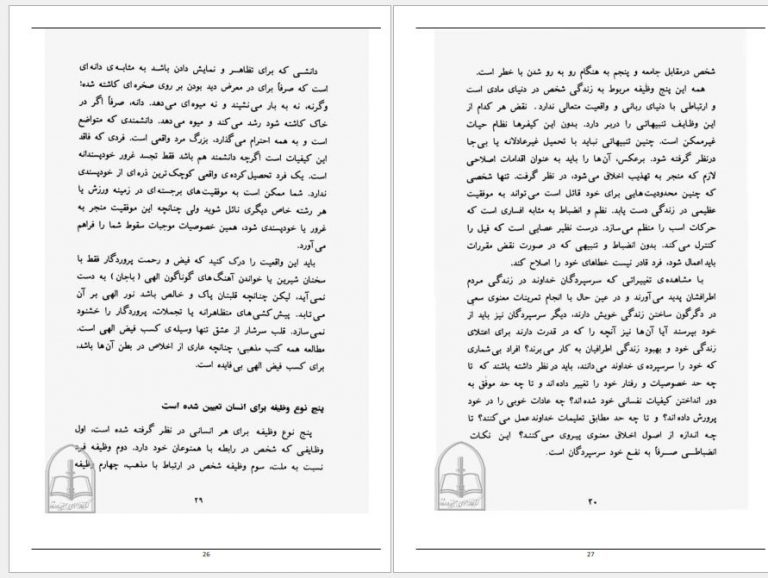 دانشی که برای تظاهر و نمایش دادن باشد به مثابه‌ی دانه‌ای
است که صرفاً برای در معرض دید بودن بر روی صخره‌ای کاشته شده!
وگرنه، نه به بار می‌نشیند و نه میوه‌ای می‌دهد. دانه، صرفاً اگر در
خاک کاشته شود رشد می‌کند و میوه می‌دهد. دانشمندی که متواضع
است و به همه احترام می‌گذارد، بزرگ مرد واقعی است. فردی که فاقد
این کیفیات است اگرچه دانشمند هم باشد فقط تجسد غرور خودپسندانه
است. یک فرد تحصیل‌کرده‌ی واقعی کوچک‌ترین ذره‌ای از خودپسندی
ندارد. شما ممکن است به موفقیت‌های برجسته‌ای در زمینه ورزش یا
هر رشته خاص دیگری نائل شوید ولی چنانچه این موفقیت منجر به
غرور یا خودپسندی شود، همین خصوصیات موجبات سقوط شما را فراهم
می‌آورد.
باید این واقعیت را درک کنید که فیض و رحمت پروردگار فقط با
سخنان شیرین یا خواندن آهنگ‌های گوناگون الهی (باجان) به دست
نمی‌آید، لیکن چنانچه قلبتان پاک و خالص باشد نور الهی بر آن
می‌تابد. پیش‌کشی‌های متظاهرانه یا تجملات، پروردگار را خشنود
نمی‌سازد. قلب سرشار از عشق تنها وسیله‌ی کسب فیض الهی است.
مطالعه همه کتب مذهبی، چنانچه عاری از اخلاص در بطن آن‌ها باشد،
برای کسب فیض الهی بی‌فایده است.
پنج نوع وظیفه برای انسان تعیین شده است
پنج نوع وظیفه برای هر انسانی در نظر گرفته شده است، اول
وظایفی که شخص در رابطه با همنوعان خود دارد. دوم وظیفه فرد
نسبت به ملت، سوم وظیفه شخص در ارتباط با مذهب، چهارم وظیفه
۲۹
26
شخص درمقابل جامعه و پنجم به هنگام رو به رو شدن با خطر است.
همه این پنج وظیفه مربوط به زندگی شخص در دنیای مادی است
و ارتباطی با دنیای ربانی و واقعیت متعالی ندارد. نقض هر کدام از
این وظایف تنبیهاتی را دربر دارد. بدون این کیفرها نظام حیات
غیرممکن است. چنین تنبیهاتی نباید با تحمیل غیرعادلانه یا بی‌جا
درنظر گرفته شود. برعکس، آن‌ها را باید به عنوان اقدامات اصلاحی
لازم که منجر به تهذیب اخلاق می‌شود، در نظر گرفت. تنها شخصی
که چنین محدودیت‌هایی برای خود قائل است می‌تواند به موفقیت
عظیمی در زندگی دست یابد. نظم و انضباط به مثابه افساری است که
حرکات اسب را منظم می‌سازد. درست نظیر عصایی است که فیل را
کنترل می‌کند. بدون انضباط و تنبیهی که در صورت نقض مقررات
باید اعمال شود، فرد قادر نیست خطاهای خود را اصلاح کند.
با مشاهده‌ی تغییراتی که سرسپردگان خداوند در زندگی مردم
اطرافشان پدید می‌آورند و در عین حال با انجام تمرینات معنوی سعی
در دگرگون ساختن زندگی خویش دارند، دیگر سرسپردگان نیز باید از
خود بپرسند آیا آن‌ها نیز آنچه را که در قدرت دارند برای اعتلای
زندگی خود و بهبود زندگی اطرافیان به کار می‌برند؟ افراد بی‌شماری
که خود را سرسپرده‌ی خداوند می‌دانند، باید درنظر داشته باشند که تا
چه حد خصوصیات و رفتار خود را تغییر داده‌اند و تا چه حد موفق به
دور انداختن کیفیات نفسانی خود شده‌اند؟ چه عادات خوبی را در خود
پرورش داده‌اند؟ و تا چه حد مطابق تعلیمات خداوند عمل می‌کنند؟ تا
چه اندازه از اصول اخلاق معنوی پیروی می‌کنند؟ این نکات
انضباطی صرفاً به نفع خود سرسپردگان است.
۳۰
27